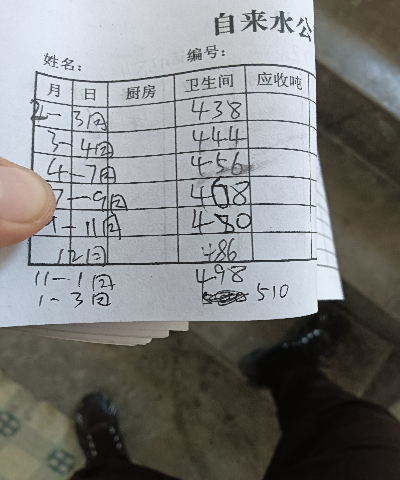 自来水公
姓名: 编号:
月 日 厨房 卫生间 应收吨
2-3月 438
3-4月 444
4-7月 456
7-9月 468
-11月 480
12月 486
11-1月 498
1-3月 510